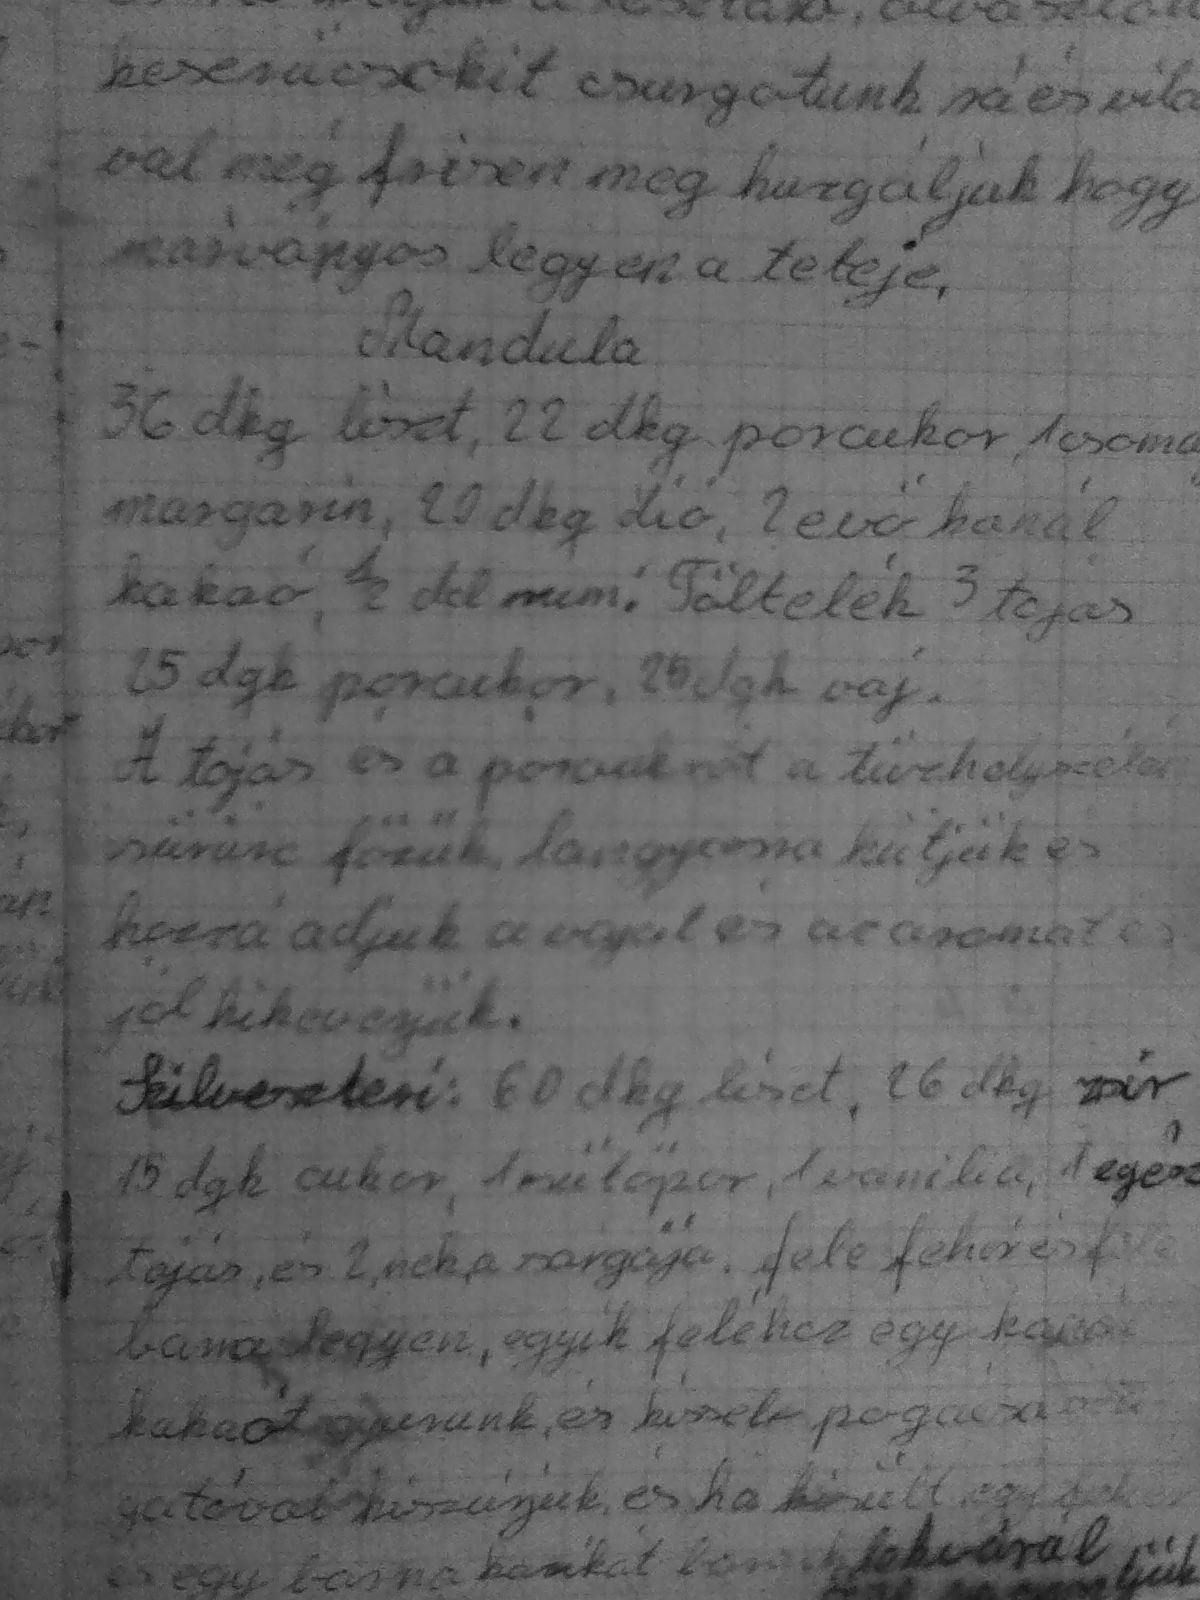 keserücsokit csurgatunk rá és villá
val még frisen meg huzgáljuk hogy
márványos legyen a teteje,
Mandula
36 dkg liszt, 22 dkg porcukor, 1 csomag
margarin, 20 dkg dió, 2 evő kanál
kakaó, 1/2 del rum. Töltelék 3 tojás
25 dgk porcukor, 25 dgk vaj.
A tojás és a porcukrot a tűzhelyszélén
sürüre főzük, langyosra hűtjük és
hozzá adjuk a vajat és az aromát és
jól kikeverjük.
Szilveszteri: 60 dkg liszt, 26 dkg zsir
15 dgk cukor, 1 sütőpor, 1 vanilia, 1 egész
tojás, és 2, nek a sárgája. fele fehér és fele
barna legyen, egyik feléhez egy kanál
kakaót és kissebb pogácsa
gatóval kiszúrjuk, és ha kisült egy fehér
és egy barna karikát lekvárral